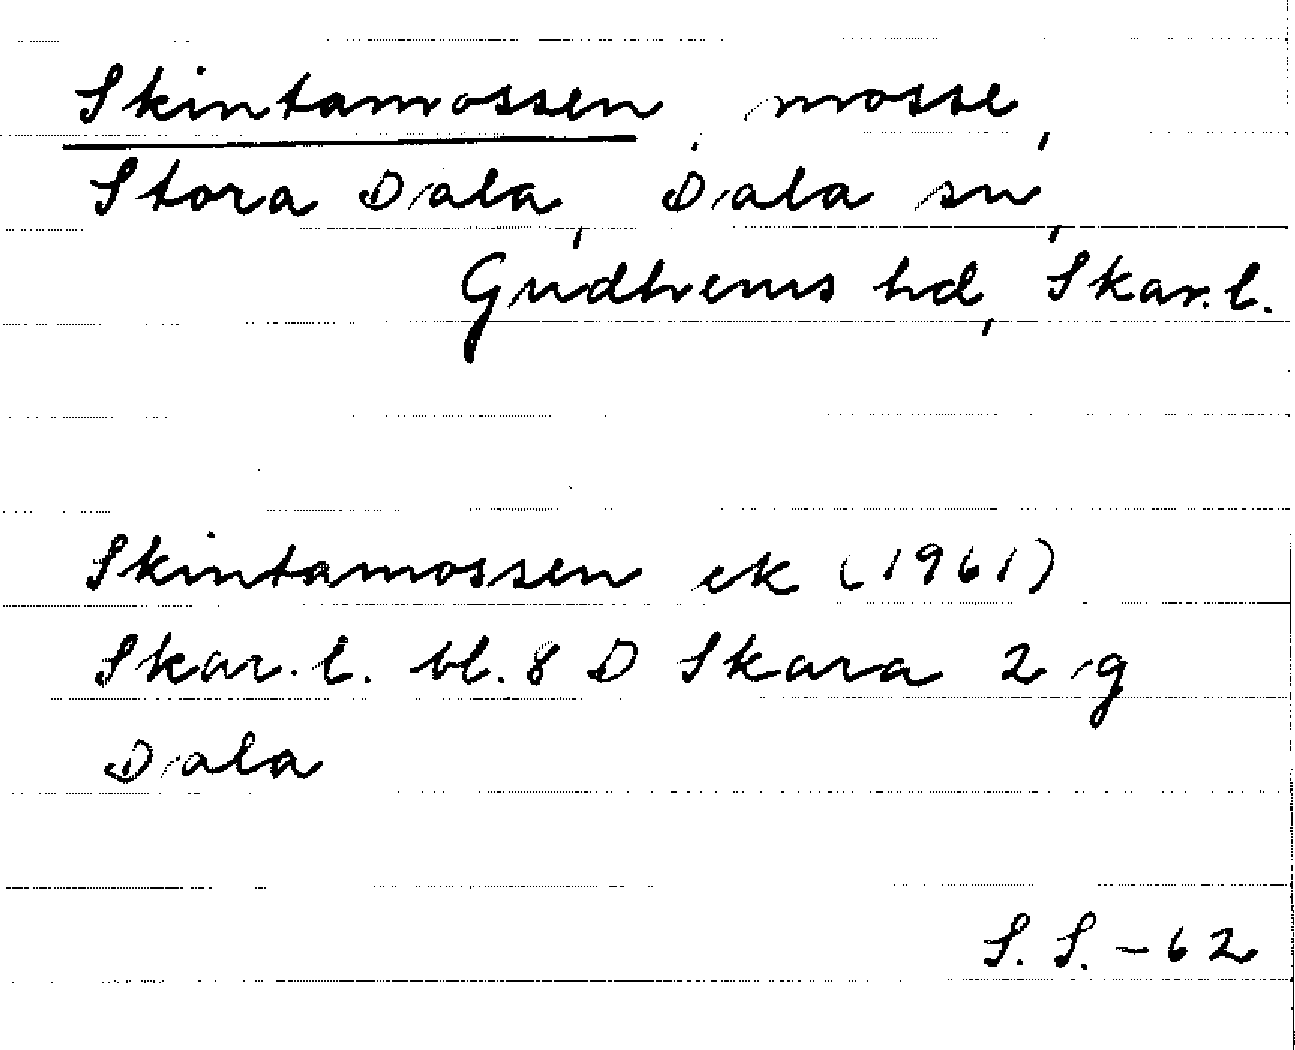 Skintamossen, mosse,
Stora Dala, Dala sn,
Gudhems hd, Skar.l.
Skintamossen ek (1961)
Skar.l. bl. 8 D Skara 2 g
Dala
S. S. - 62